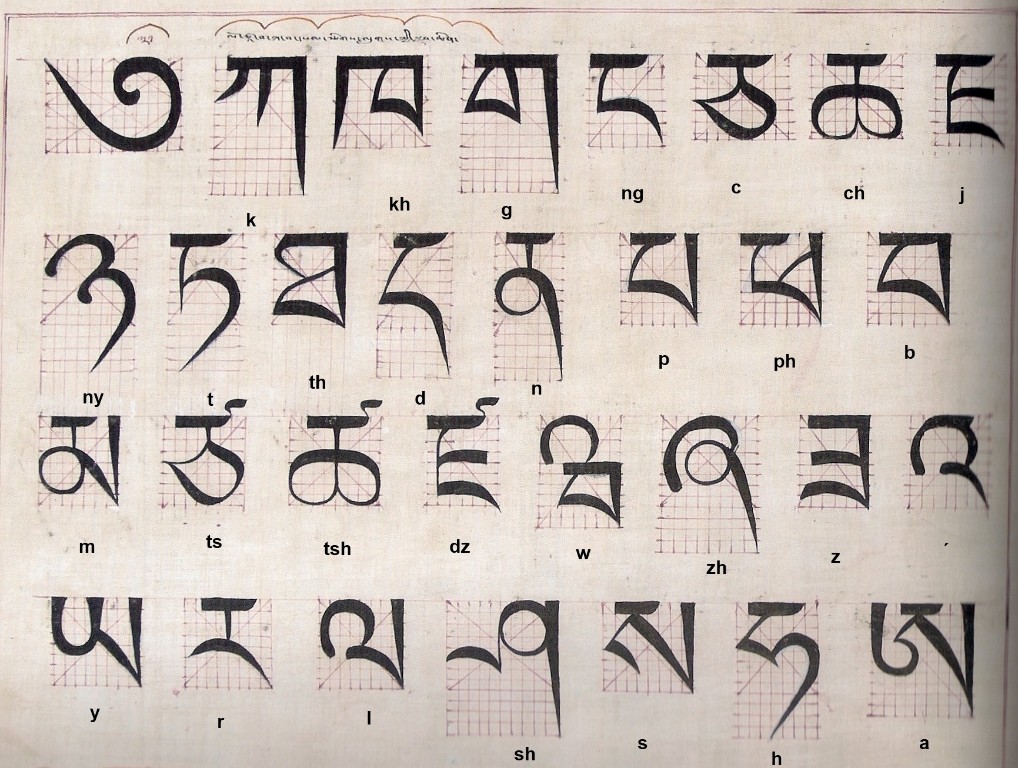 ༧ ཀ ཁ ག ང ཅ ཆ ཇ
k kh g ng c ch j
ཉ ཏ ཐ ད ན པ ཕ བ
ny t th d n p ph b
མ ཙ ཚ ཛ ཝ ཞ ཟ འ
m ts tsh dz w zh z ´
ཡ ར ལ ཤ ས ཧ ཨ
y r l sh s h a